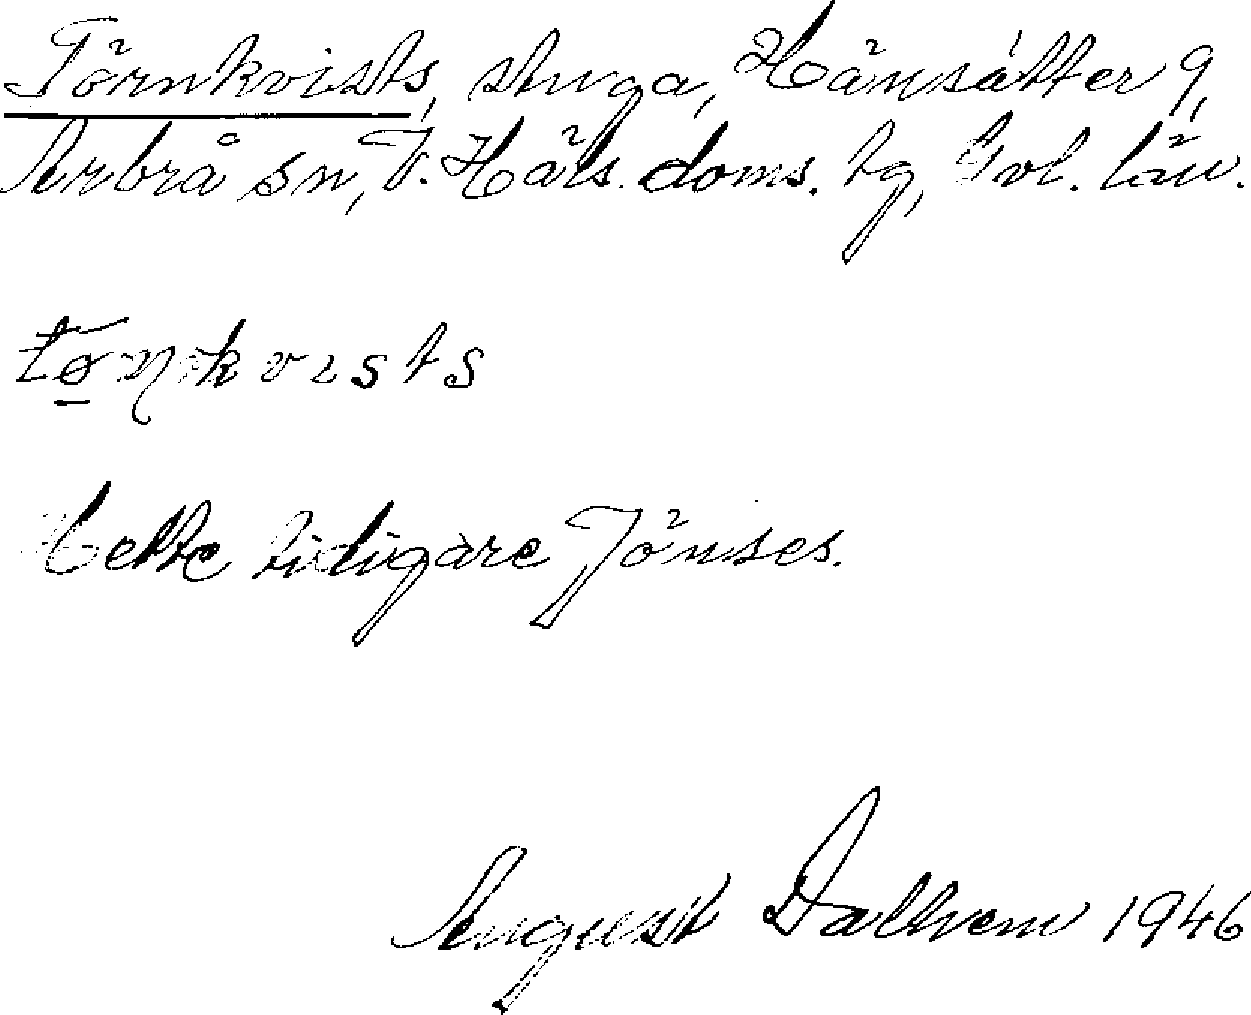 Törnkvists, stuga, Hänsätter 9,
Arbrå sn, V. Häls. doms. tg, Gvl. län.
tø̠ɳkvists
Hette tidigare Jönses.
August Dalhem 1946